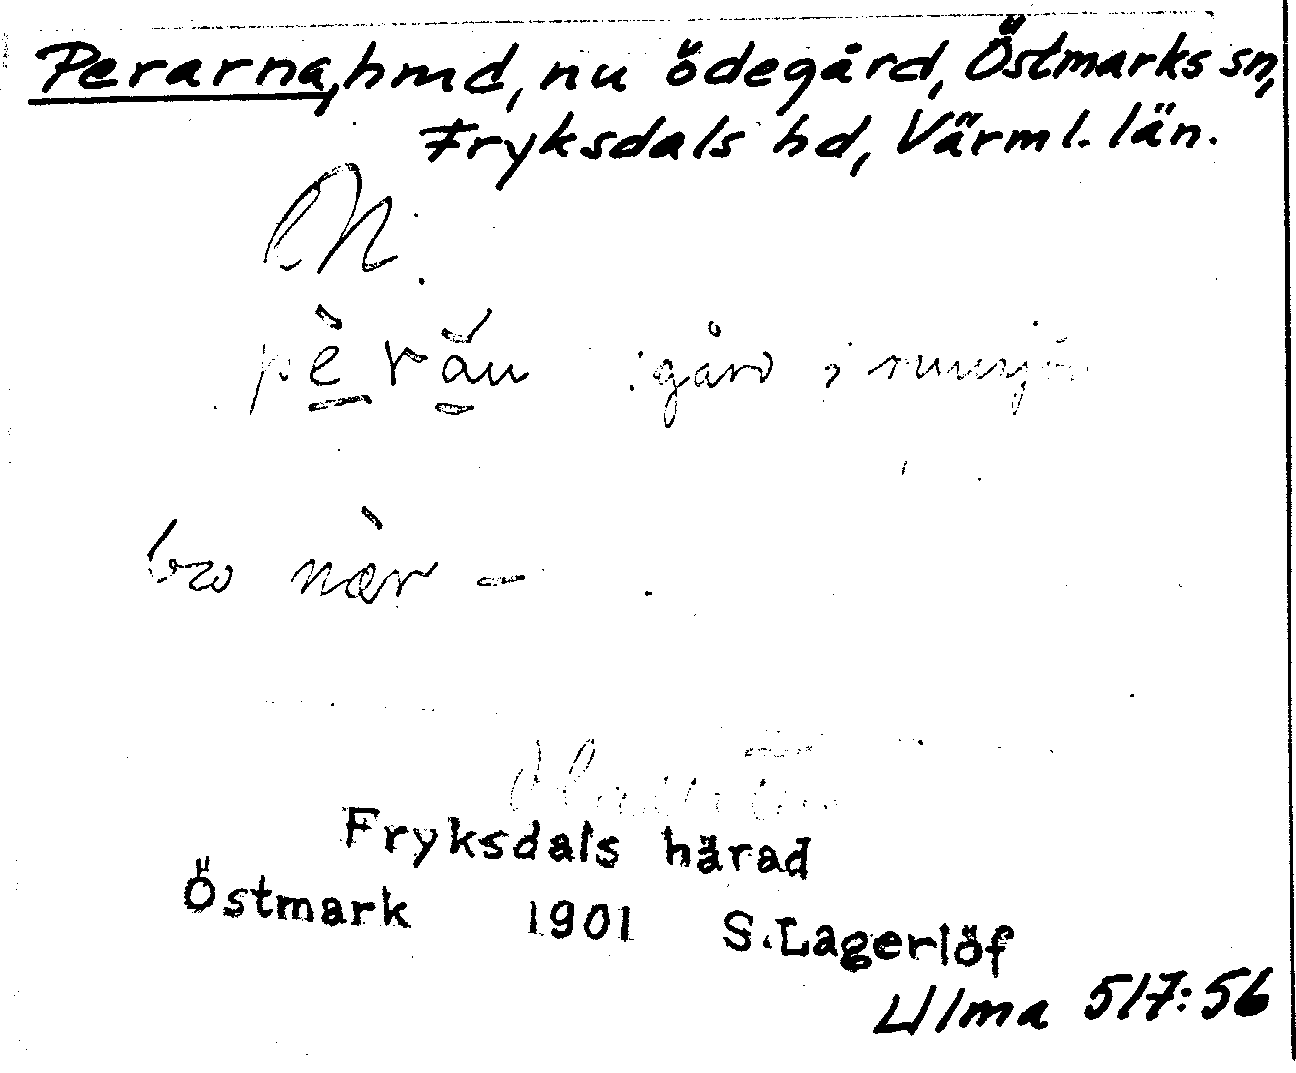 Perarna, hmd, nu ödegård, Östmarks sn,
Fryksdals hd, Värml. län.
N.
pèrău gård i
bro nær –
Fryksdals härad
Östmark 1901 S. Lagerlöf
Ulma 517:56